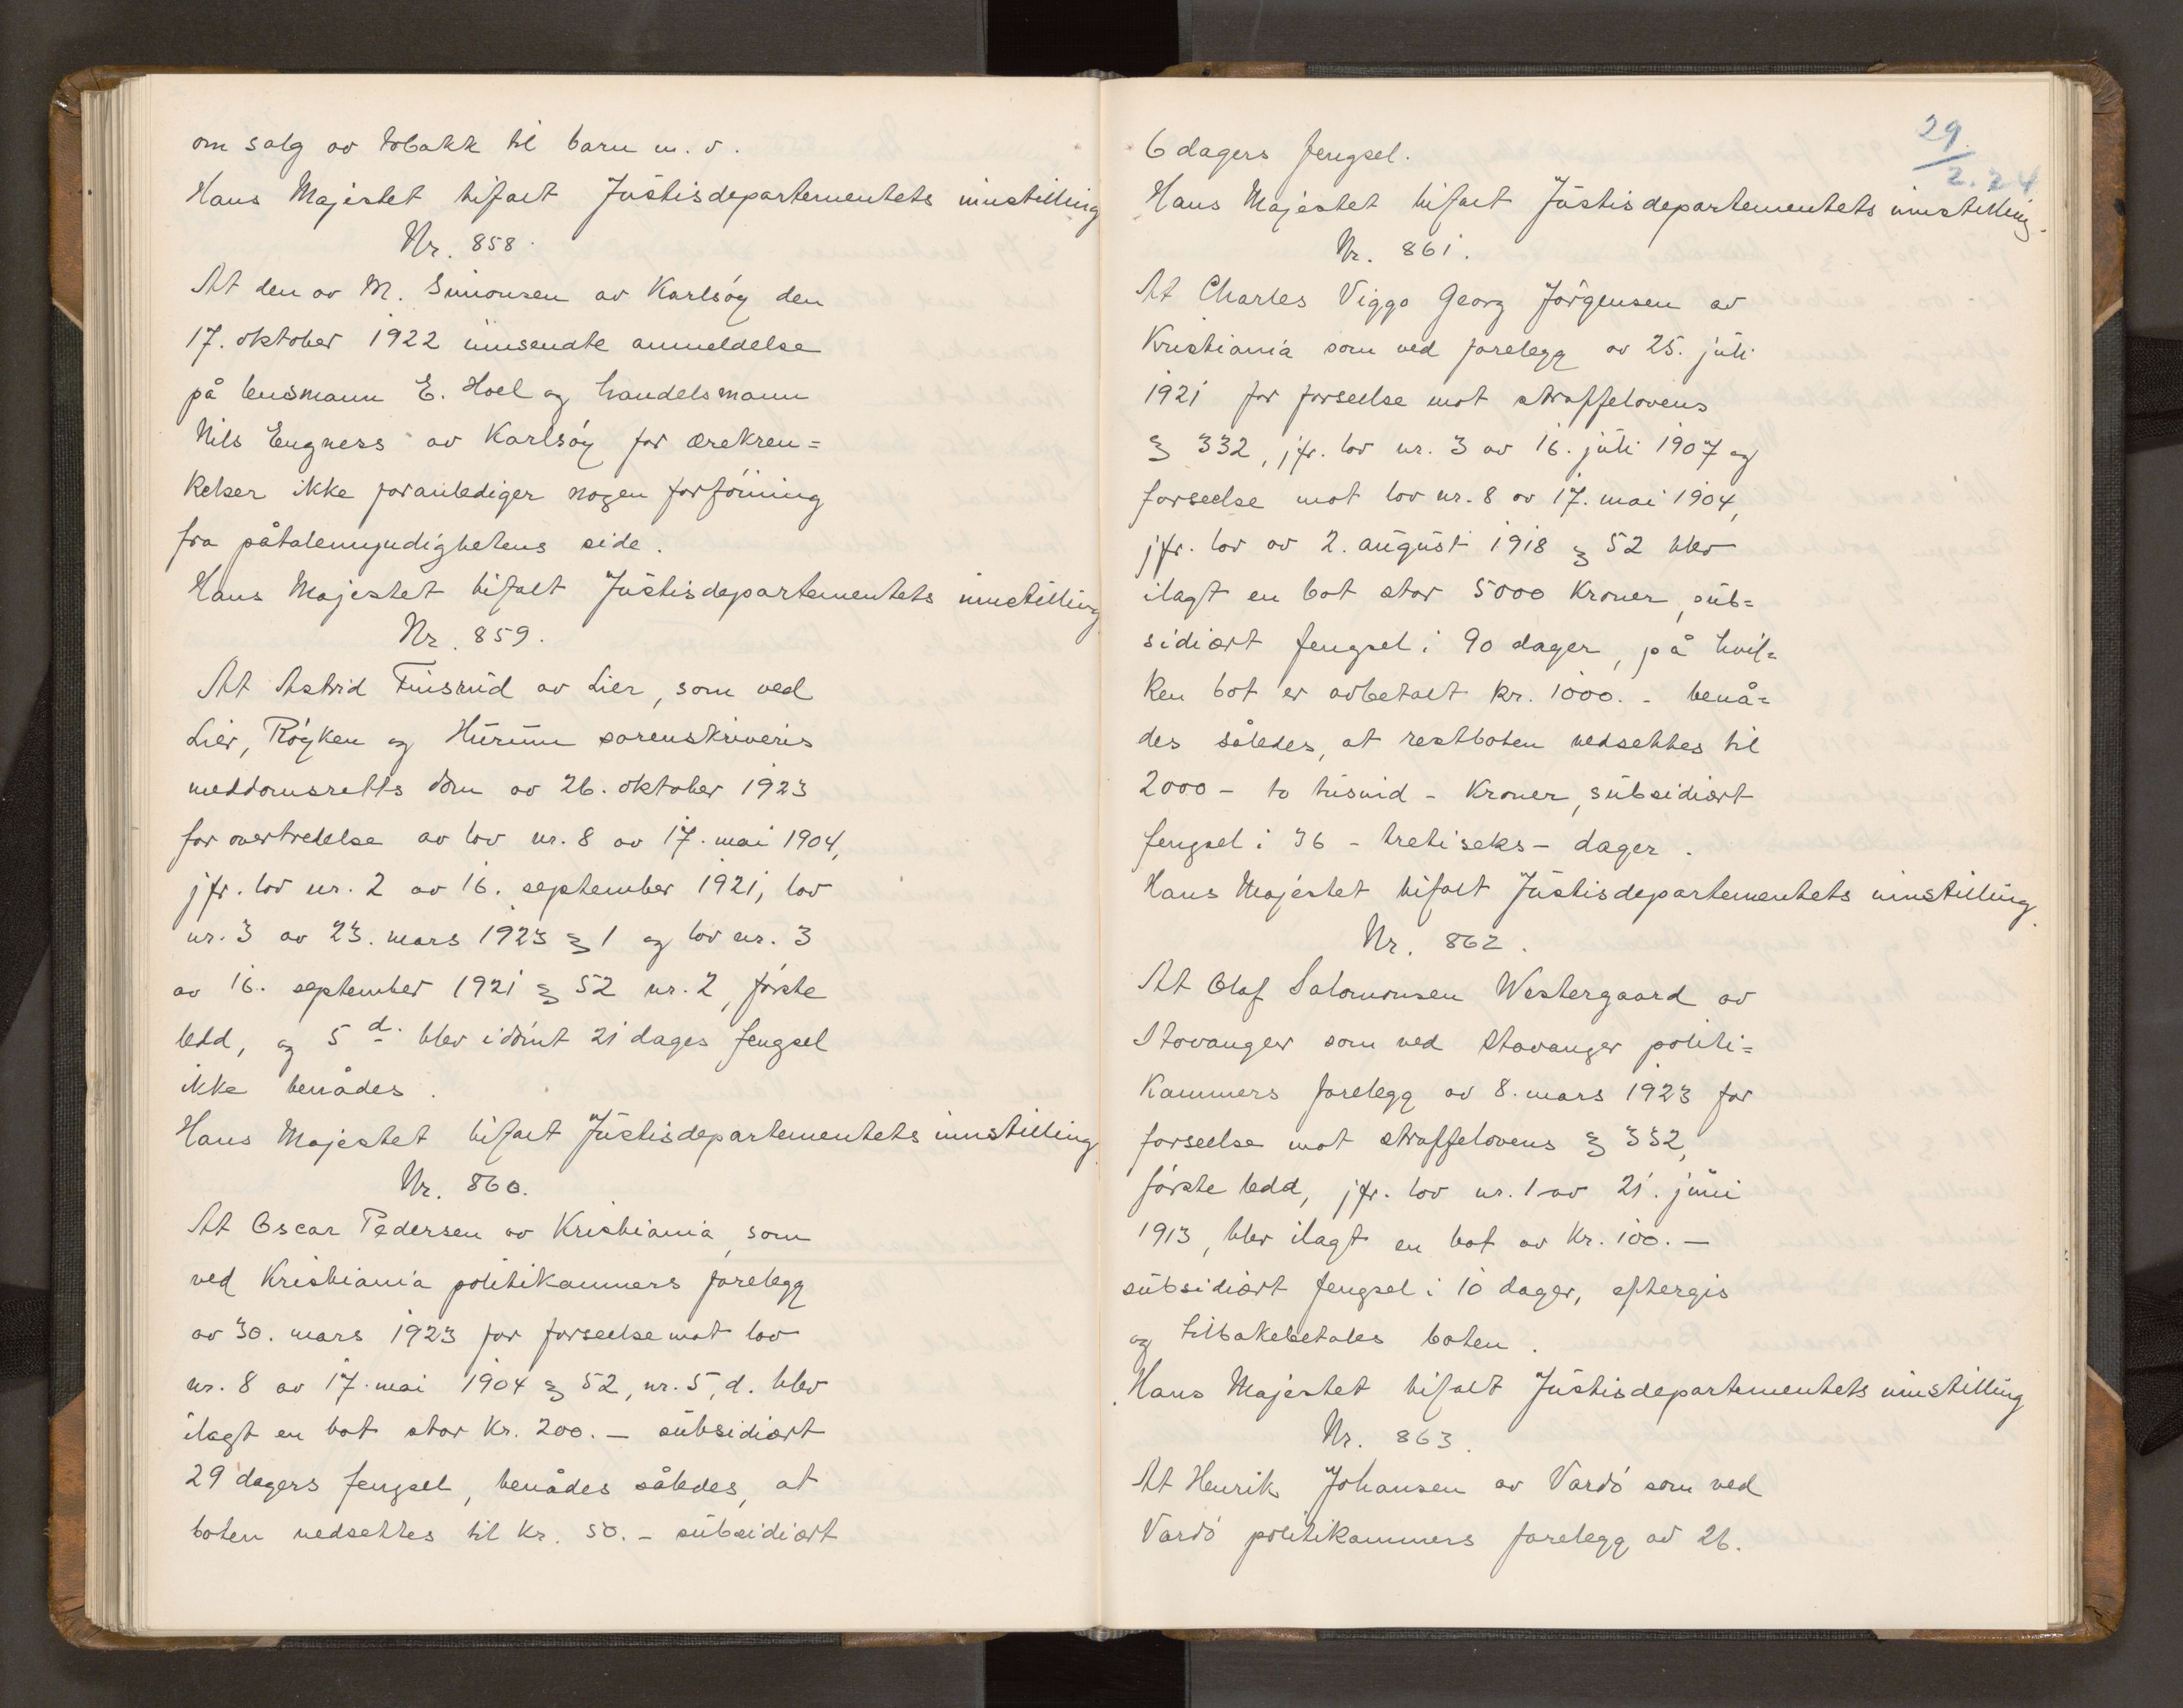 om salg av tobakk til barn m. v.
Hans Majestet bifalt Justisdepartementets innstilling
Nr. 858.
At den av M. Simonsen av Karlsøy den
17. oktober 1922 innsendte anmeldelse
på lensmann E. Hoel og handelsmann
Nils Engness av Karlsøy for ærekren=
kelser ikke foranlediger nogen forføining
fra påtalemyndighetens side.
Hans Majestet bifalt Justisdepartementets innstilling
Nr. 859.
At Astrid Finsrud av Lier, som ved
Lier, Røyken og Hurum sorenskriveris
meddomsretts dom av 26. oktober 1923
for overtredelse av lov nr. 8 av 17. mai 1904,
jfr. lov nr. 2 av 16. september 1921, lov
nr. 3 av 23. mars 1923 § 1 og lov nr. 3
av 16. september 1921 § 52 nr. 2, første
ledd, og 5 d. blev idømt 21 dages fengsel
ikke benådes.
Hans Majestet bifalt Justisdepartementets innstilling
Nr. 860.
At Oscar Pedersen av Kristiania, som
ved Kristiania politikammers forelegg
av 30. mars 1923 for forseelse mot lov
nr. 8 av 17. mai 1904 § 52, nr. 5, d. blev
ilagt en bot stor kr. 200. – subsidiært
29 dagers fengsel, benådes således, at
boten nedsettes til kr. 50. – subsidiært
29/2.24
6 dagers fengsel.
Hans Majestet bifalt Justisdepartementets innstilling.
Nr. 861.
At Charles Viggo Georg Jørgensen av
Kristiania som ved forelegg av 25. juli
1921 for forseelse mot straffelovens
§ 332, jfr. lov nr. 3 av 16. juli 1907 og
forseelse mot lov nr. 8 av 17. mai 1904,
jfr. lov av 2. august 1918 § 52 blev
ilagt en bot stor 5000 kroner, sub=
sidiært fengsel i 90 dager, på hvil=
ken bot er avbetalt kr. 1000. – benå=
des således, at restboten nedsettes til
2000 – to tusind – kroner, subsidiært
fengsel i 36 – tretiseks – dager.
Hans Majestet bifalt Justisdepartementets innstilling.
Nr. 862.
At Olaf Salomonsen Westergaard av
Stavanger som ved Stavanger politi=
kammers forelegg av 8. mars 1923 for
forseelse mot straffelovens § 332,
første ledd, jfr. lov nr. 1 av 21. juni
1913, blev ilagt en bot av kr. 100. –
subsidiært fengsel i 10 dager, eftergis
og tilbakebetales boten.
Hans Majestet bifalt Justisdepartementets innstilling
Nr. 863.
At Henrik Johansen av Vardø som ved
Vardø politikammers forelegg av 26.